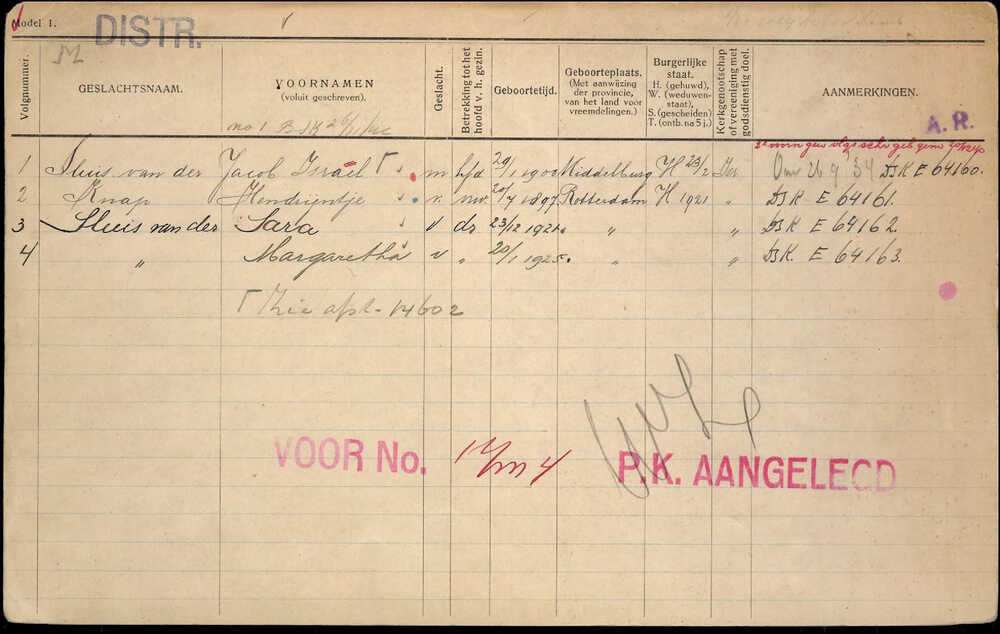 Model 1.
DISTR.
M
Volgnummer. GESLACHTSNAAM. VOORNAMEN (voluit geschreven). Geslacht. Betrekking tot het hoofd v. h. gezin. Geboortetijd. Geboorteplaats. (Met aanwijzing der provincie, van het land voor vreemdelingen.) Burgerlijke staat. H. (gehuwd), W. (weduwenstaat), S. (gescheiden) T. (ontb. na 5 j.) Kerkgenootschap of vereeniging met godsdienstig doel. AANMERKINGEN.
no 1 BSK
A.R.
1 Sluis van der Jacob Israël m hfd 29/1 1900 Middelburg H 23/2 26 9 '34 BSK E 64160.
2 Knap Hendrientje v. vrw. 20/7 1897 Rotterdam H 1921 " BSK E 64161.
3 Sluis van der Sara v dr. 23/12 1921 " " BSK E 64162.
4 " Margaretha v " 20/1 1925 " " BSK. E 64163.
Zie afst. 14602
VOOR No. 1 t/m 4 P.K. AANGELEGD